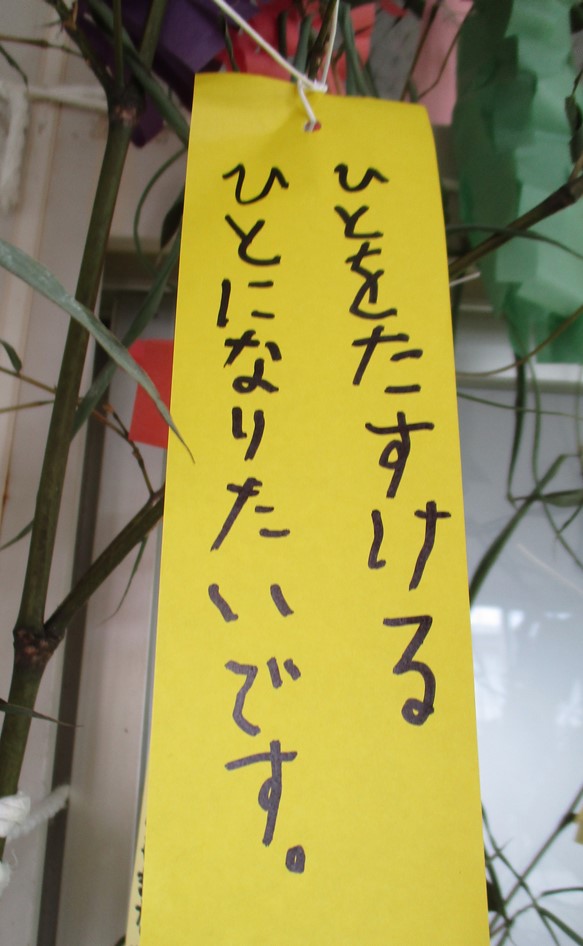 ひとをたすける
ひとになりたいです。